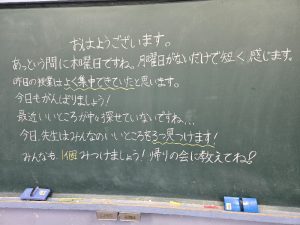 おはようございます。
あっという間に木曜日ですね。月曜日がないだけで短く感じます。
昨日の授業はよく集中できていたと思います。
今日もがんばりましょう！
最近いいところが中々探せていないですね...
今日、先生はみんなのいいところを3つ見つけます！
みんなも1個みつけましょう！帰りの会に教えてね!